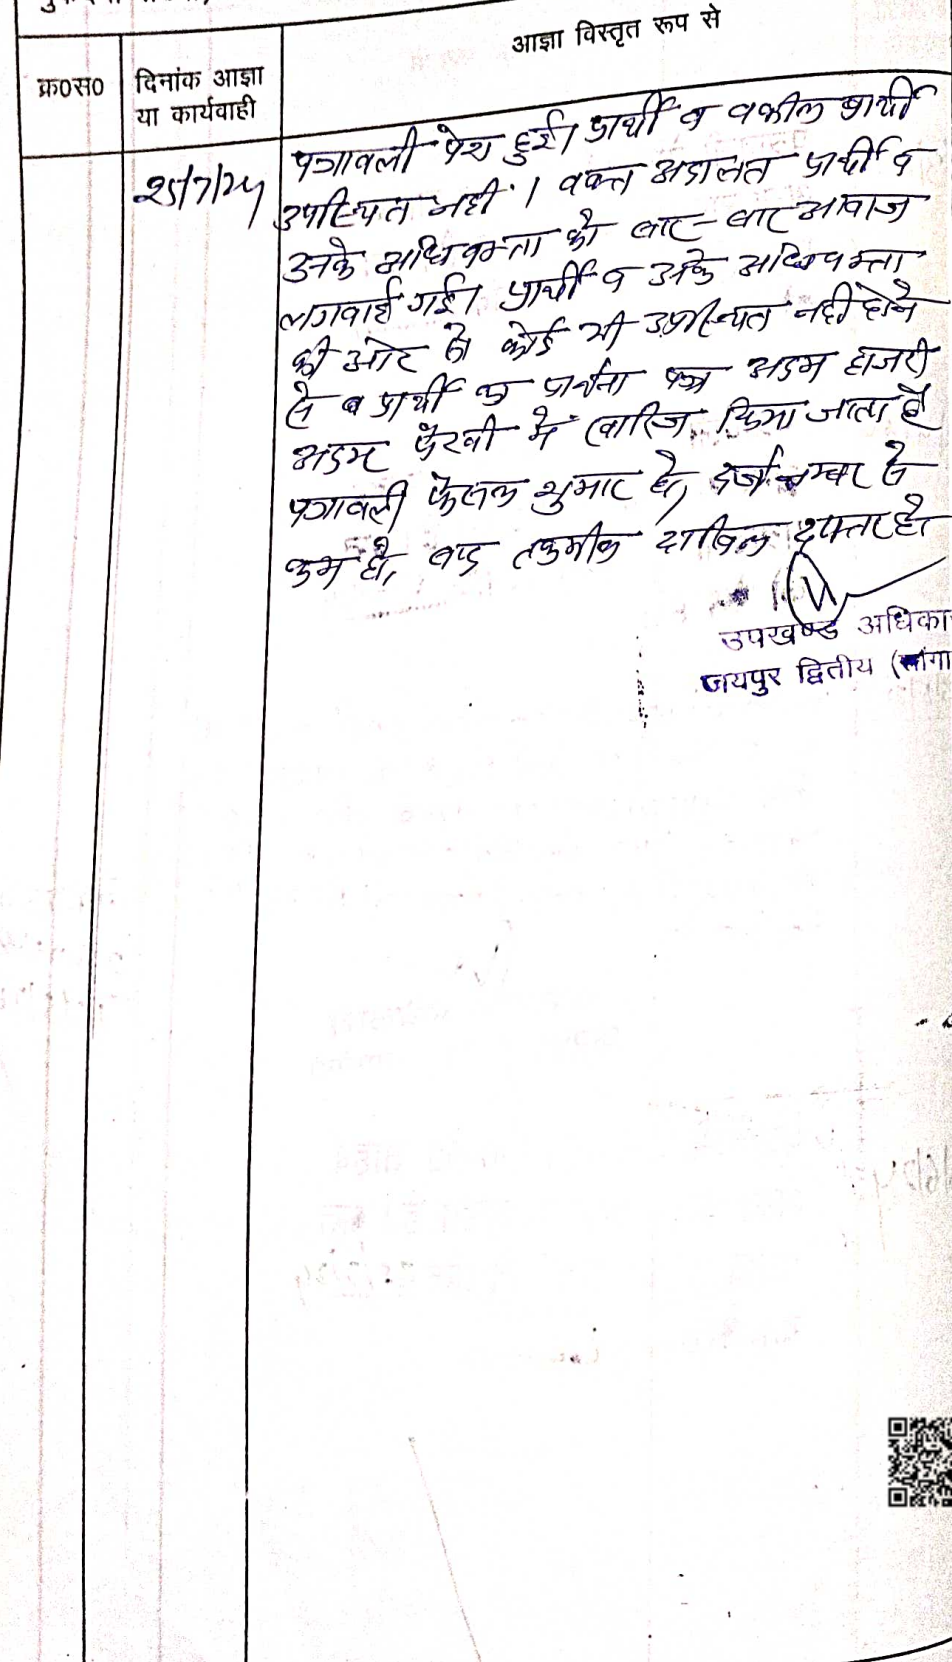 आज्ञा विस्तृत रूप से
क्र0स0
दिनांक आज्ञा
या कार्यवाही
25/7/24
पत्रावली पेश हुई। प्रार्थी व वकील प्रार्थी
उपस्थित नहीं। वक्त अदालत प्रार्थी व
उनके अधिवक्ता को बार-बार आवाज
लगवाई गई। प्रार्थी व उनके अधिवक्ता
की ओर से कोई भी उपस्थित नहीं होने
से व प्रार्थी का प्रार्थना पत्र अदम हाजरी
अदम पैरवी में खारिज किया जाता है
पत्रावली फैसल शुमार हो, दर्ज नम्बर से
कम हो, बाद तकमील दाखिल दफ्तर हो।
उपखण्ड अधिका
जयपुर द्वितीय (सांगा